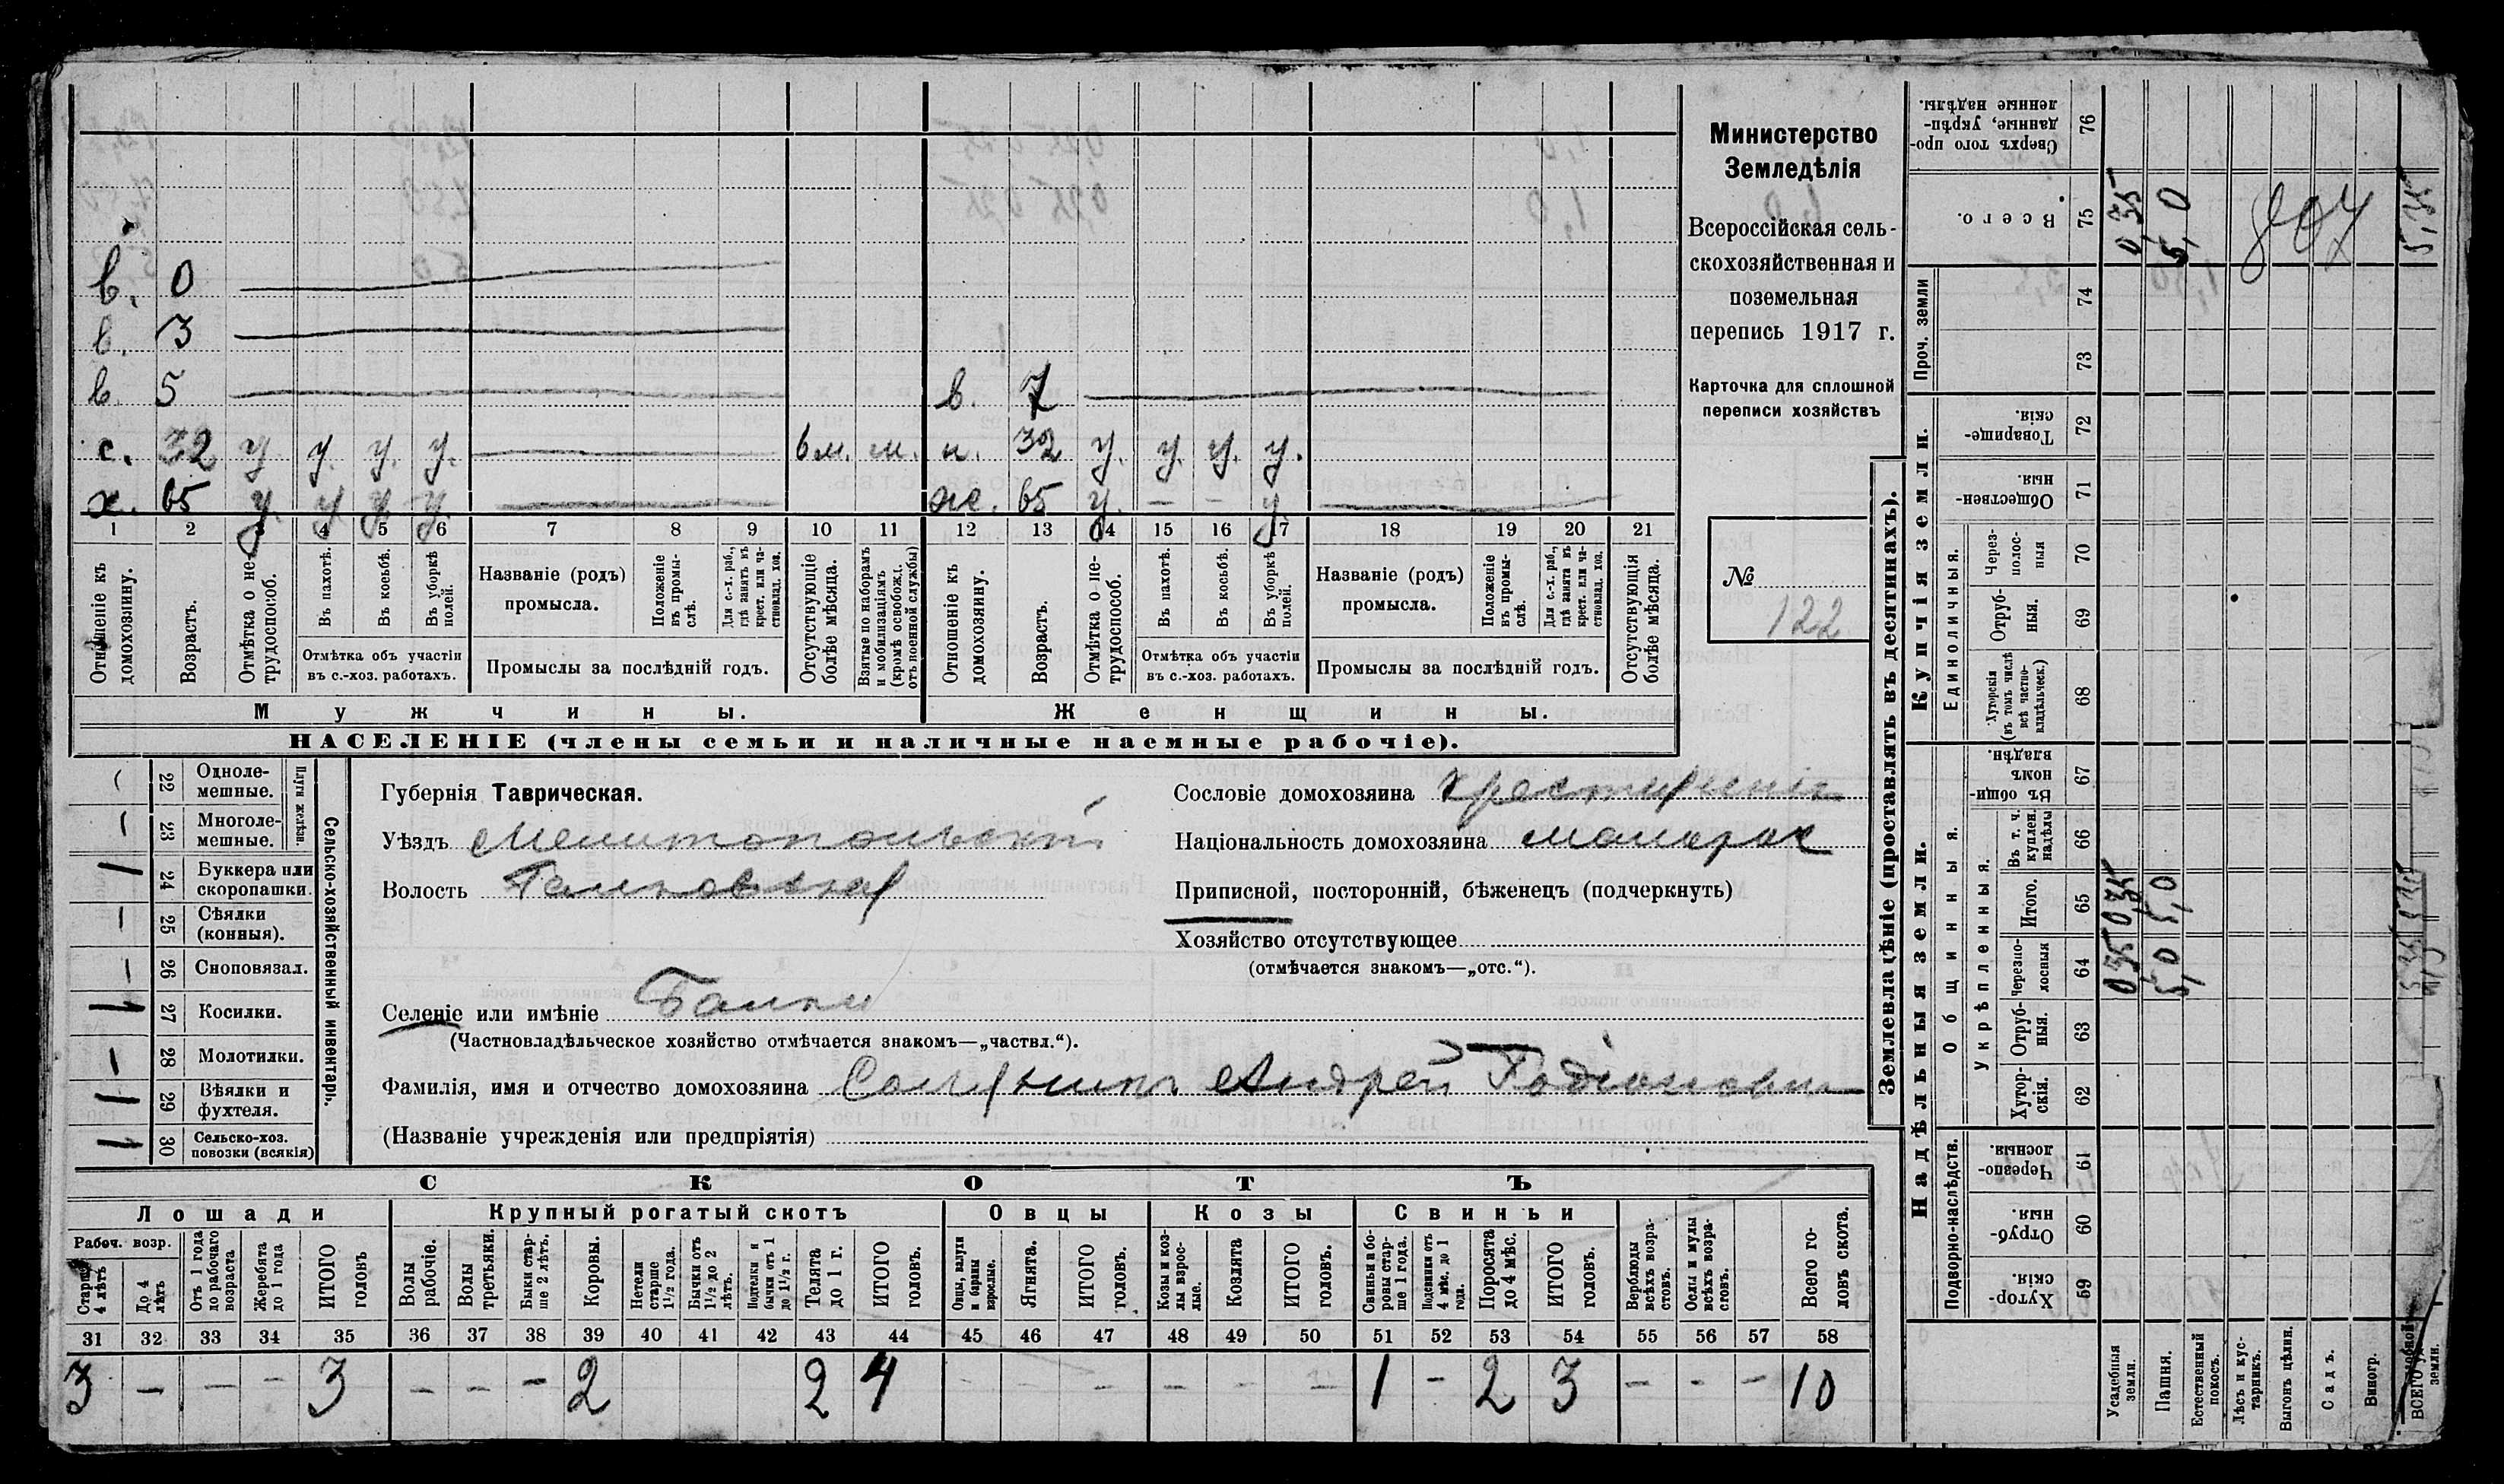 в. 0
в. 3
в. 5 в. 7
с. 32 у. у. у. у. 6 м. м. н. 32 у. у. у. у.
х. 65 у. у. у. у. же. 65 у. — — у.
1 2 3 4 5 6 7 8 9 10 11 12 13 14 15 16 17 18 19 20 21
Отношеніе къ домохозяину.
Возрастъ.
Отмѣтка о нетрудоспособ.
Въ пахотѣ.
Въ косьбѣ.
Въ уборкѣ полей.
Отмѣтка объ участіи въ с.-хоз. работахъ.
Названіе (родъ) промысла.
Положеніе въ промыслѣ.
Для с.-х. раб., гдѣ занятъ въ крест. или частновлад. хоз.
Промыслы за послѣдній годъ.
Отсутствующіе болѣе мѣсяца.
Взятые по наборамъ и мобилизаціямъ (кромѣ освобожд. отъ военной службы)
Отношеніе къ домохозяину.
Возрастъ.
Отмѣтка о не-трудоспособ.
Въ пахотѣ.
Въ косьбѣ.
Въ уборкѣ полей.
Отмѣтка объ участіи въ с.-хоз. работахъ.
Названіе (родъ) промысла.
Положеніе въ промыслѣ.
Для с.-х. раб., гдѣ занята въ крест. или частновлад. хоз.
Промыслы за послѣдній годъ.
Отсутствующія болѣе мѣсяца.
Мужчины. Женщины.
НАСЕЛЕНІЕ (члены семьи и наличные наемные рабочіе).
Министерство
Земледѣлія
Всероссійская сель-
скохозяйственная и
поземельная
перепись 1917 г.
Карточка для сплошной
переписи хозяйствъ
№
122
22 Одноле-мешные.
23 Многоле-мешные.
Плуги желѣзн.
24 Буккера или скоропашки.
25 Сѣялки (конныя).
26 Сноповязал.
27 Косилки.
28 Молотилки.
29 Вѣялки и фухтеля.
30 Сельско-хоз. повозки (всякія)
Сельско-хозяйственный инвентарь.
1 1 1 1
Губернія Таврическая.
Уѣздъ Мелитопольскій
Волость Балковская
Селеніе или имѣніе Балки
(Частновладѣльческое хозяйство отмѣчается знакомъ—„частвл.“).
Фамилія, имя и отчество домохозяина Андрей Родіонович
(Названіе учрежденія или предпріятія)
Сословіе домохозяина крестьянин
Національность домохозяина малорос
Приписной, посторонній, бѣженецъ (подчеркнуть)
Хозяйство отсутствующее
(отмѣчается знакомъ—„отс.“).
СКОТЪ
Лошади Крупный рогатый скотъ Овцы Козы Свиньи
Рабоч. возр.
Старше 4 лѣтъ
До 4 лѣтъ
Отъ 1 года до рабочаго возраста
Жеребята до 1 года
ИТОГО головъ
Волы рабочіе.
Волы третьяки.
Быки стар-ше 2 лѣтъ.
Коровы.
Нетели старше 1½ года.
Бычки отъ 1½ до 2 лѣтъ.
Подтелки и бычки отъ 1 до 1½ г.
Телята до 1 г.
ИТОГО головъ.
Овцы, валухи и бараны взрослые.
Ягнята.
ИТОГО головъ.
Козы и коз-лы взрос-лые.
Козлята
ИТОГО головъ.
Свиньи и бо-ровы стар-ше 1 года.
Подсвинки отъ 4 мѣс. до 1 года.
Поросята до 4 мѣс.
ИТОГО головъ.
Верблюды всѣхъ возра-стовъ.
Ослы и мулы всѣхъ возра-стовъ.
Всего го-ловъ скота.
31 32 33 34 35 36 37 38 39 40 41 42 43 44 45 46 47 48 49 50 51 52 53 54 55 56 57 58
3 — — — 3 — — — 2 2 4 — — — — — — 1 — 2 3 — — — 10
Землевладѣніе (проставлять въ десятинахъ).
Надѣльныя земли.
Купчія земли.
Проч. земли
Подворно-наслѣдств.
Общинныя.
Укрѣпленныя.
Единоличныя.
Хутор-скія. 59
Отруб-ныя. 60
Черезпо-лосныя. 61
Хутор-скія. 62
Отруб-ныя. 63
Черезпо-лосныя 64
Итого. 65
Въ т. ч. куплен. надѣлы 66
Въ общин-номъ владѣн. 67
Хуторскія (въ томъ числѣ всѣ частно-владѣльческ.) 68
Отруб-ныя. 69
Через-полос-ныя 70
Обществен-ныя. 71
Товарище-скія. 72
73
74
Всего. 75
Сверхъ того про-данные, укрѣп-ленные надѣлы. 76
Усадебныя земли. 0,35 0,35 0,35
Пашня. 5,0 5,0 5,0
Естественный покосъ.
Лѣсъ и кус-тарникъ.
Выгонъ цѣлин.
Садъ.
Виногр.
ВСЕГО удобной земли. 5,35 5,35 5,35
807